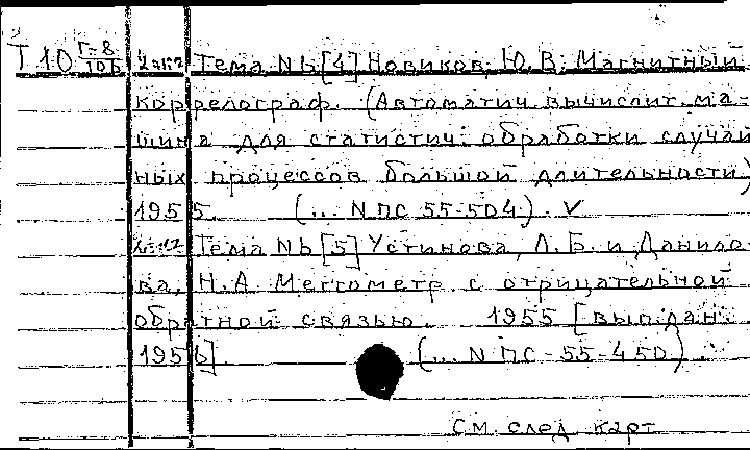 Т 10 Г-8/10Б 2 экз Тема №[4] Новиков, Ю. В. Магнитный
коррелограф. (Автоматич. вычислит. ма-
шина для статистич. обработки случай
ных процессов большой длительности)
1955. (... N ПС 55-504). V
2 экз Тема №[5] Устинова, Л. Б. и Данило-
ва, Н. А. Меггометр с отрицательной
обратной связью. 1955 [вып. дан.
1956]. (... N ПС-55-450).
См. след карт